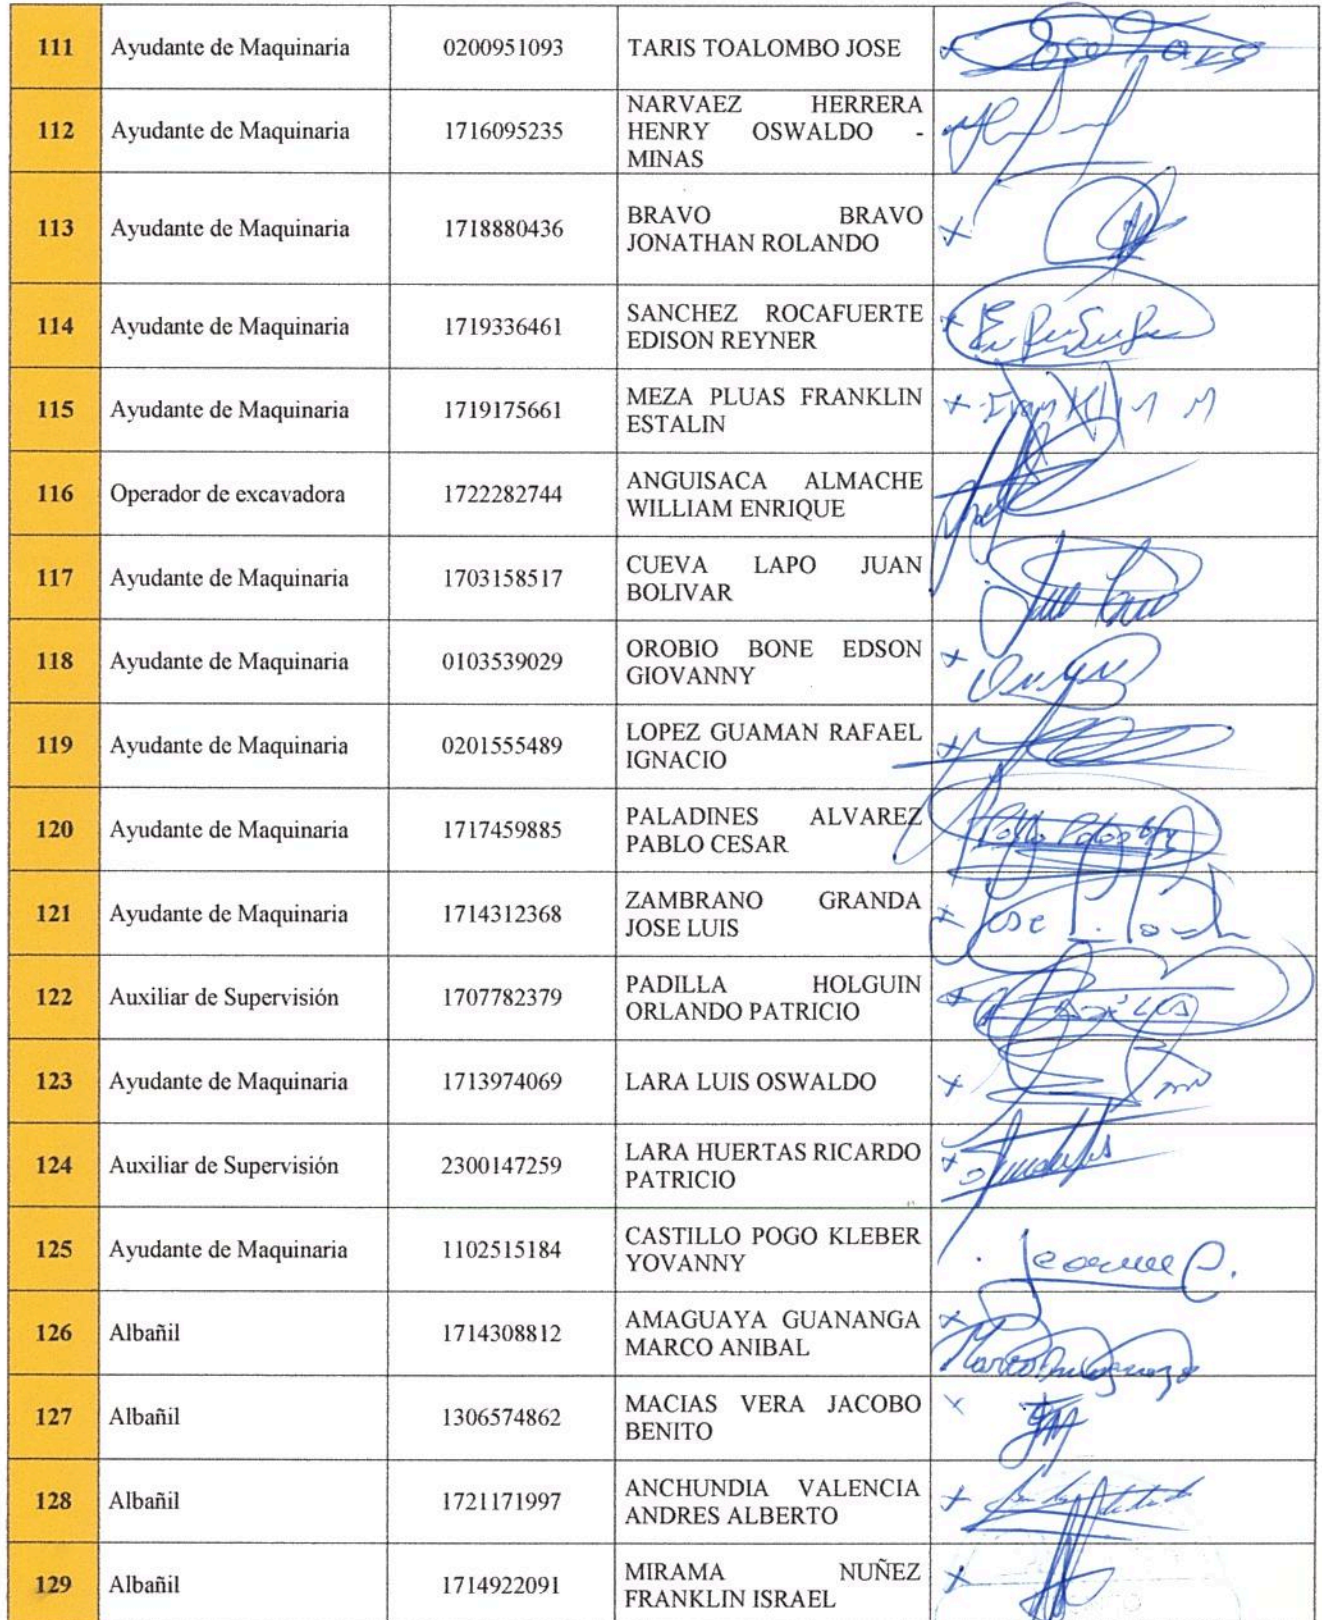 111 Ayudante de Maquinaria 0200951093 TARIS TOALOMBO JOSE
112 Ayudante de Maquinaria 1716095235 NARVAEZ HERRERA
HENRY OSWALDO -
MINAS
113 Ayudante de Maquinaria 1718880436 BRAVO BRAVO
JONATHAN ROLANDO
114 Ayudante de Maquinaria 1719336461 SANCHEZ ROCAFUERTE
EDISON REYNER
115 Ayudante de Maquinaria 1719175661 MEZA PLUAS FRANKLIN
ESTALIN
116 Operador de excavadora 1722282744 ANGUISACA ALMACHE
WILLIAM ENRIQUE
117 Ayudante de Maquinaria 1703158517 CUEVA LAPO JUAN
BOLIVAR
118 Ayudante de Maquinaria 0103539029 OROBIO BONE EDSON
GIOVANNY
119 Ayudante de Maquinaria 0201555489 LOPEZ GUAMAN RAFAEL
IGNACIO
120 Ayudante de Maquinaria 1717459885 PALADINES ALVAREZ
PABLO CESAR
121 Ayudante de Maquinaria 1714312368 ZAMBRANO GRANDA
JOSE LUIS
122 Auxiliar de Supervisión 1707782379 PADILLA HOLGUIN
ORLANDO PATRICIO
123 Ayudante de Maquinaria 1713974069 LARA LUIS OSWALDO
124 Auxiliar de Supervisión 2300147259 LARA HUERTAS RICARDO
PATRICIO
125 Ayudante de Maquinaria 1102515184 CASTILLO POGO KLEBER
YOVANNY
126 Albañil 1714308812 AMAGUAYA GUANANGA
MARCO ANIBAL
127 Albañil 1306574862 MACIAS VERA JACOBO
BENITO
128 Albañil 1721171997 ANCHUNDIA VALENCIA
ANDRES ALBERTO
129 Albañil 1714922091 MIRAMA NUÑEZ
FRANKLIN ISRAEL